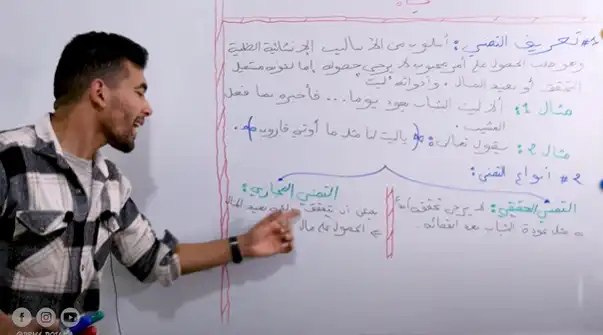 #1 تعريف التمني: أسلوب من الأساليب الإنشائية الطلبية
وهو طلب الحصول على أمر محبوب لا يرجى حصوله إما لكونه مستحيل
التحقق أو بعيد المنال. وأدواته "ليت"
مثال 1: ألا ليت الشباب يعود يوما... فأخبره بما فعل
المشيب.
مثال 2: يقول تعالى: «ياليت لنا مثل ما أوتي قارون».
#2 أنواع التمني:
التمني الحقيقي: لا يرجى تحققه أبدا
مثل عودة الشباب بعد انقضائه.
التمني المجازي:
يمكن أن يتحقق بعيد المنال
الحصول على مال